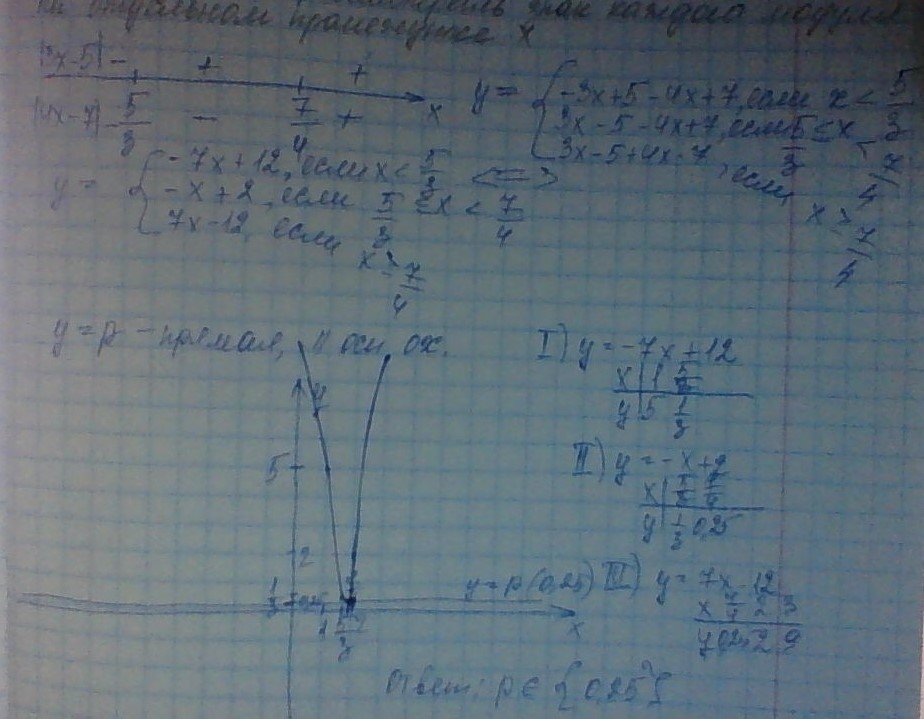 на отдельном промежутке знак каждого модуля
x
|3x-5| - + +
|4x-7| - 5/3 - 7/4 + x
y = { -3x+5-4x+7, если x < 5/3
3x-5-4x+7, если 5/3 ≤ x < 7/4
3x-5+4x-7, если x ≥ 7/4
y = { -7x+12, если x < 5/3 <=>
-x+2, если 5/3 ≤ x < 7/4
7x-12, если x ≥ 7/4
y=p - прямая, || оси ох.
I) y=-7x+12
x 1 5/3
y 5 1/3
II) y=-x+2
x 5/3 7/4
y 1/3 0,25
III) y=7x-12
x 7/4 2 3
y 0,25 2 9
y
5
2
1/3 0,25
1 5/3
y=p (0,25)
x
Ответ: p∈{0,25}